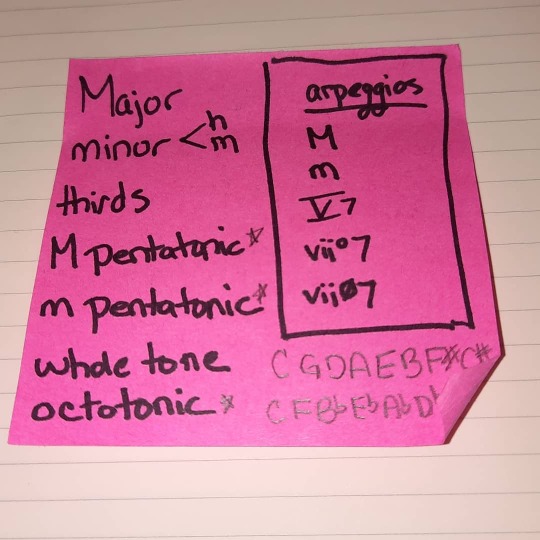 Major
minor < h
m
thirds
M pentatonic*
m pentatonic*
whole tone
octotonic *
arpeggios
M
m
V7
vii°7
viiø7
C G D A E B F# C#
C F Bb Eb Ab Db